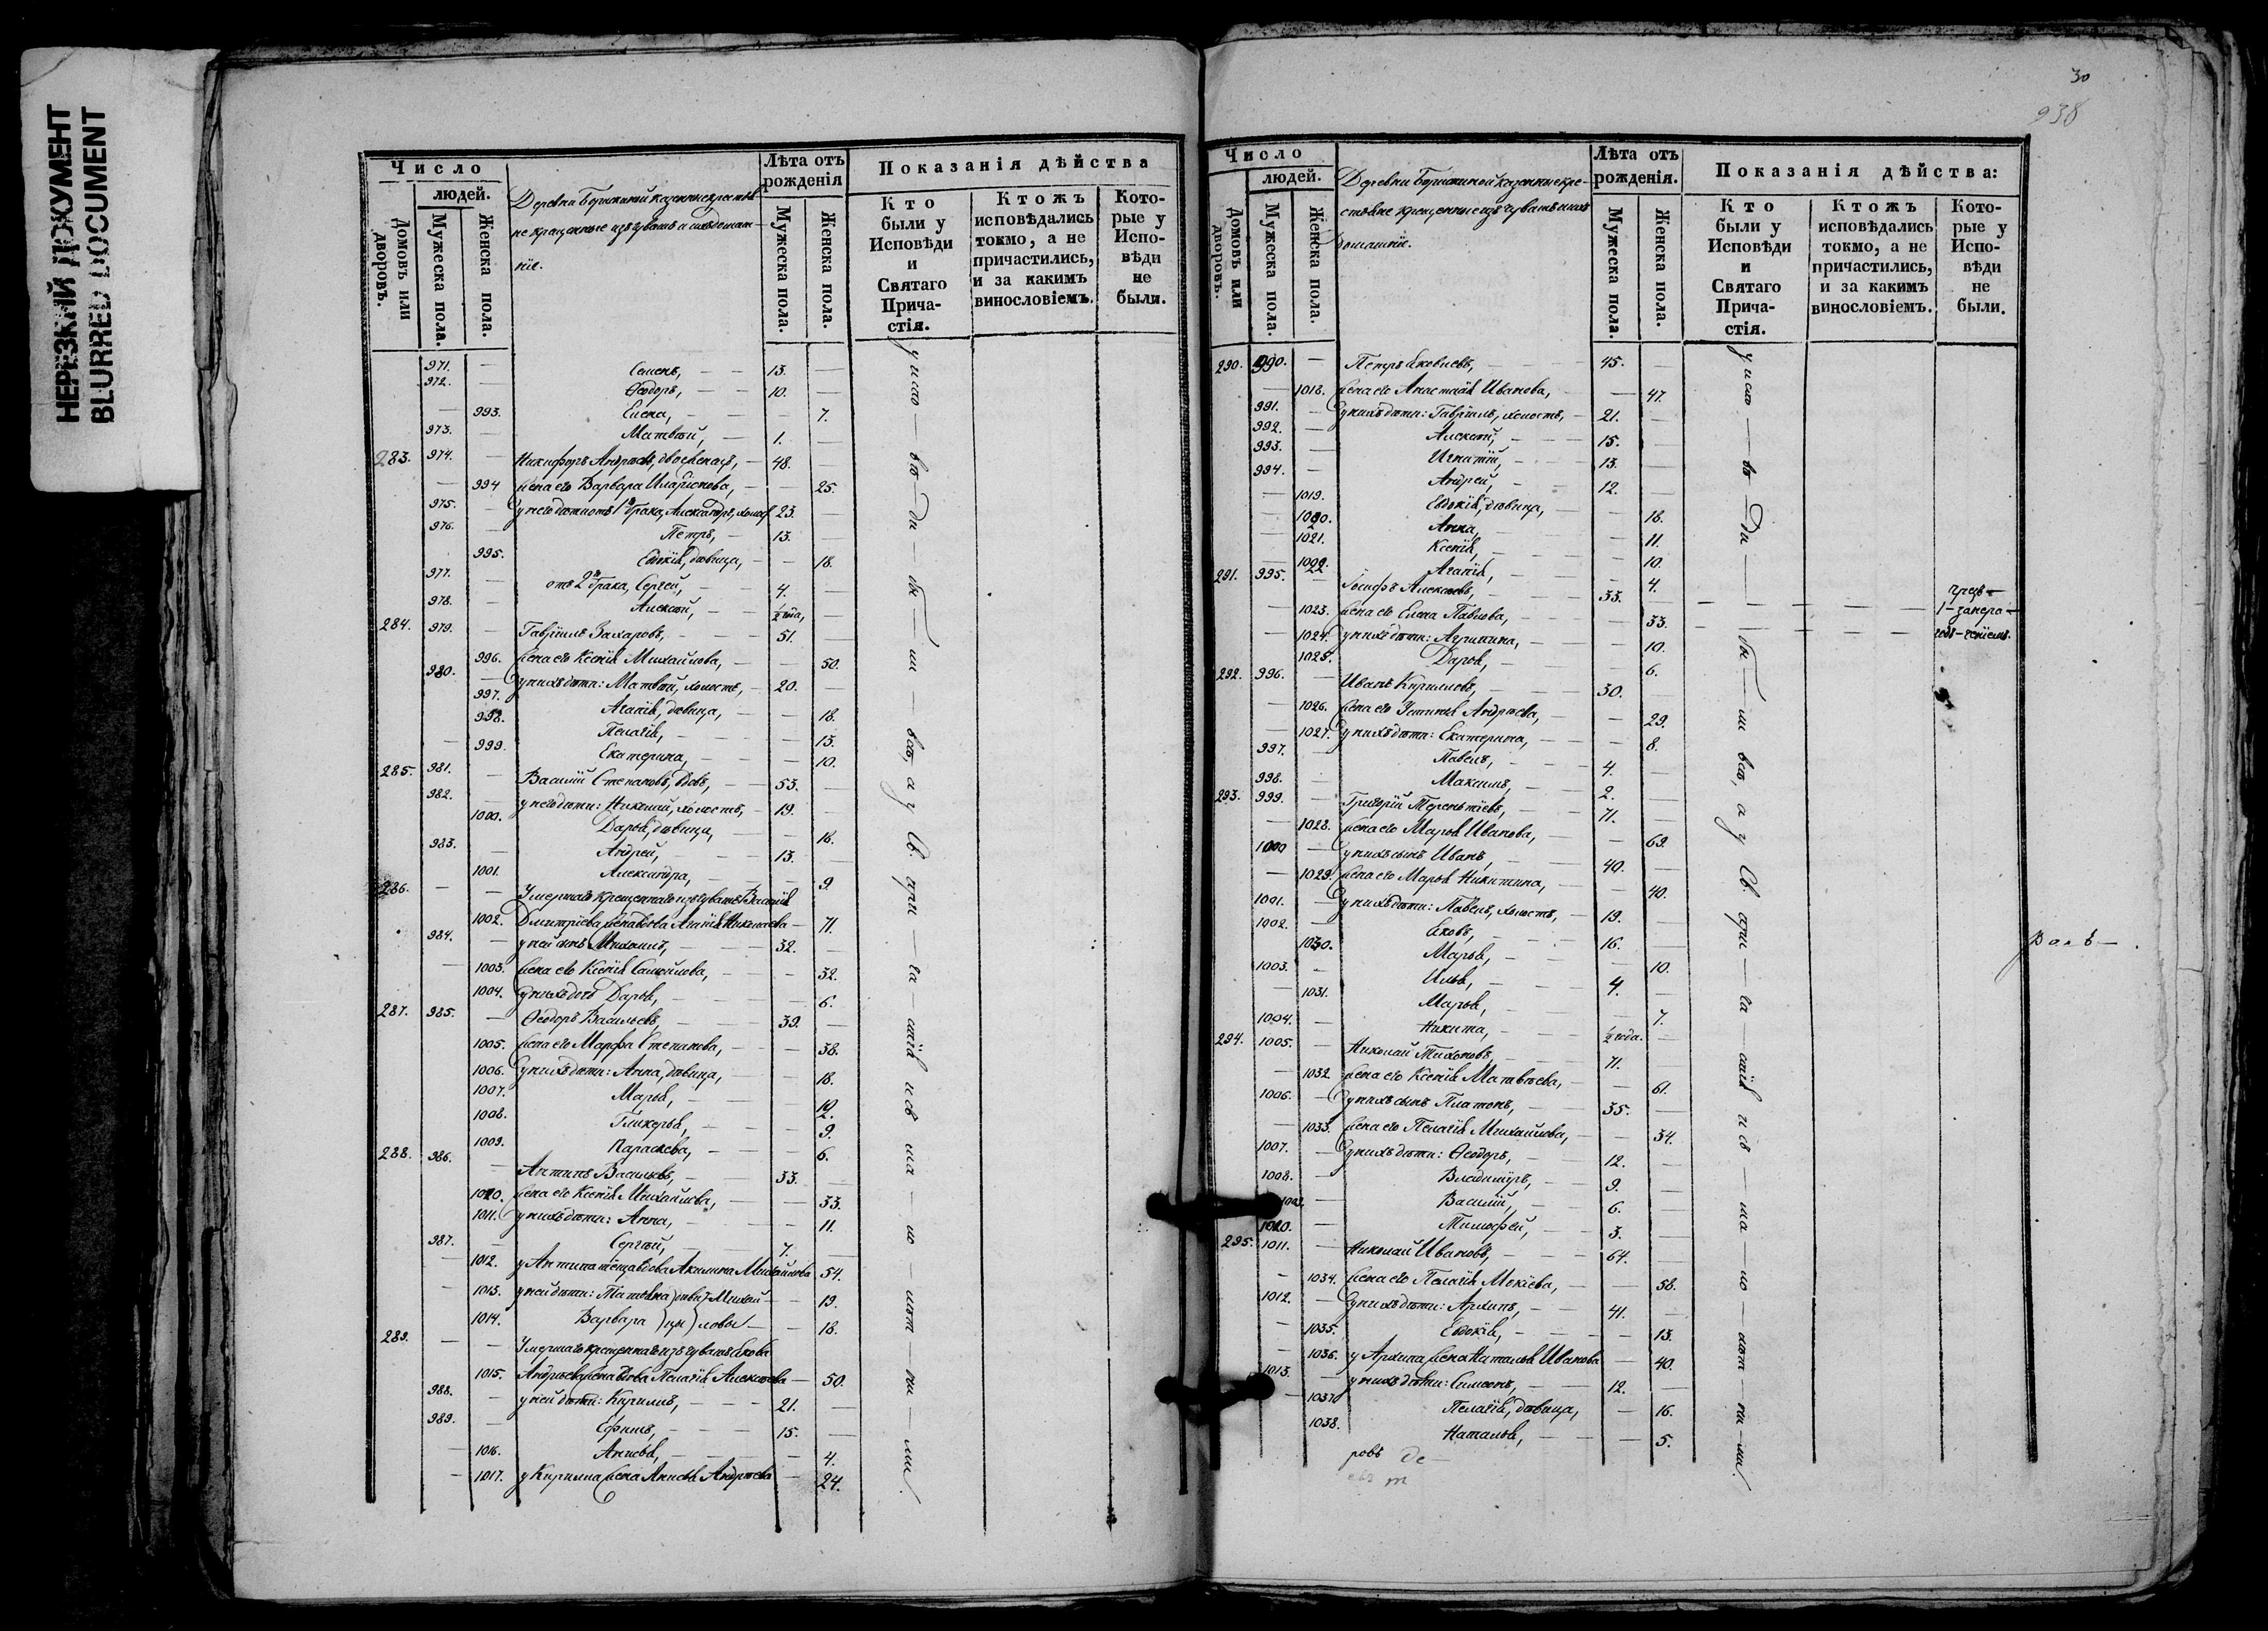 НЕРЕЗКИЙ ДОКУМЕНТ
BLURRED DOCUMENT
Число
людей.
Домовъ или дворовъ.
Мужеска пола.
Женска пола.
Деревни казенные крестья-
не крещенные изъ чувашъ и ихъ домаш-
ніе.
Лѣта отъ рожденія
Мужеска пола.
Женска пола.
Показанія дѣйства
Кто были у Исповѣди и Святаго Прича-стія.
Ктожъ исповѣдались токмо, а не причастились, и за какимъ винословіемъ.
Кото-рые у Испо-вѣди не были.
971. — Семенъ, — — 13. —
972. — Ѳеодоръ, — 10. —
— 993. Елена, — — — 7.
973. — Матвѣй, — 1. —
283. 974. — Никифоръ Андреевъ, двоеженецъ, — 48. —
— 994 Жена его Варвара Иларіонова, — — 25.
975. — у него дѣти отъ 1го брака, Александръ, холост 23. —
976. — Петръ, — 13. —
995. Евдокія, дѣвица, — — 18.
977. — отъ 2го брака, Сергей, — 4. —
978. — Алексѣй, — ½ года, —
284. 979. — Гавріилъ Захаровъ, — 51. —
996. Жена его Ксенія Михайлова, — — 50.
980. — у нихъ дѣти: Матвѣй, холостъ, — 20. —
997. Агапія, дѣвица, — — 18.
998. Пелагія, — — 13.
— 999. Екатерина, — — 10.
285. 981. — Василій Степановъ, вдовъ, — 53. —
982. у него дѣти: Николай, холостъ, — 19. —
1000. Дарья, дѣвица, — — 16.
983. — Андрей, — 13. —
1001. Александра, — — 9.
286. — — Умершаго крещеннаго изъ чувашъ Василія
1002. Дмитріева жена вдова Агапія Николаева — 71.
984. — у ней сынъ Михаилъ, — 32. —
— 1003. Жена его Ксенія Самойлова, — — 32.
1004. у нихъ дочь Дарья, — — 6.
287. 985. — Ѳеодоръ Васильевъ, — 39. —
1005. Жена его Марфа Степанова, — — 38.
1006. у нихъ дѣти: Анна, дѣвица, — — 18.
1007. Марья, — — 12.
1008. Гликерья, — — 9.
1009. Параскева, — — 6.
288. 986. — Антипъ Васильевъ, — 33. —
1010. Жена его Ксенія Михайлова, — — 33.
1011. у нихъ дѣти: Анна, — — 11.
987. — Сергѣй, — 7. —
— 1012. у Антипа теща вдова Акилина Михайлова 54.
— 1013. у ней дѣти: Татьяна) дѣви) Михай — — 19.
1014. Варвара ) цы ) ловы — — 18.
289. — — Умершаго крещеннаго изъ чувашъ Якова
1015. Андреева жена вдова Пелагія Алексѣева — 50.
988. — у ней дѣти: Кирилъ, — 21. —
989. — Ефимъ, — 15. —
— 1016. Анисья, — — 4.
— 1017. у Кирилла жена Анисья Андреева — 24.
30
938
Число
людей.
Домовъ или дворовъ.
Мужеска пола.
Женска пола.
Деревни казенные кре-
стьяне крещенные изъ чувашъ и ихъ
домашніе.
Лѣта отъ рожденія.
Мужеска пола.
Женска пола.
Показанія дѣйства:
Кто были у Исповѣди и Святаго Прича-стія.
Ктожъ исповѣдались токмо, а не причастились, и за какимъ винословіемъ.
Кото-рые у Испо-вѣди не были.
290. 990. — Петръ Яковлевъ, — 45. —
— 1018. Жена его Анастасія Иванова, — — 47.
991. — у нихъ дѣти: Гавріилъ, холостъ, — 21. —
992. — Алексѣй, — 15. —
993. — Игнатій, — 13. —
994. — Андрей, — 12. —
— 1019. Евдокія, дѣвица, — — 18.
— 1020. Анна, — — 11.
— 1021. Ксенія, — — 10.
— 1022. Агапія, — — 4.
291. 995. — Іосифъ Алексѣевъ, — 33. —
— 1023. Жена его Елена Павлова, — — 33.
— 1024. у нихъ дѣти: Агрипина, — — 10.
1025. Дарья, — — 6.
292. 996. — Иванъ Кирилловъ, — 30. —
— 1026. Жена его Устинья Андреева, — — 29.
— 1027. у нихъ дѣти: Екатерина, — — 8.
997. — Павелъ, — 4. —
998. — Максимъ, — 2. —
293. 999. — Григорій Терентіевъ, — 71. —
— 1028. Жена его Марья Иванова, — — 69.
1000 — у нихъ сынъ Иванъ, — 40. —
— 1029. Жена его Марья Никитина, — — 40.
1001. — у нихъ дѣти: Павелъ, холостъ, — 19. —
1002. Яковъ, — 16. —
1030. Марья, — — 10.
1003. — Илья, — 4. —
— 1031. Марья, — — 7.
1004. — Никита, — ½ года. —
294. 1005. — Николай Тихоновъ, — 71. —
— 1032 Жена его Ксенія Матвѣева, — — 61.
1006. — у нихъ сынъ Платонъ, — 35. —
— 1033. Жена его Пелагія Михайлова, — — 34.
1007. — у нихъ дѣти: Ѳеодоръ, — 12. —
1008. — Владиміръ, — 9. —
1009. — Василій, — 6. —
1010. — Тимофей, — 3. —
295. 1011. — Николай Ивановъ, — 64. —
— 1034. Жена его Пелагія Мокіева, — — 58.
1012. — у нихъ дѣти: Архипъ, — 41. —
— 1035. Евдокія, — — 13.
— 1036. у Архипа жена Наталья Иванова — 40.
1013. — у нихъ дѣти: Симеонъ, — 12. —
— 1037 Пелагія, дѣвица, — 16.
1038. Наталья, — — 5.
ровъ де —